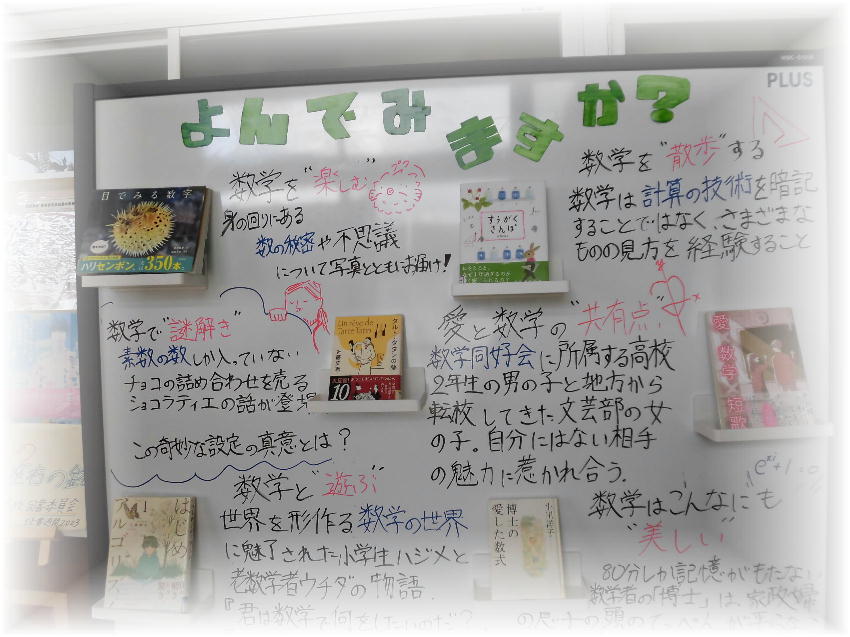 PLUS
よんでみますか？
数学を"楽しむ"
身の回りにある
数の秘密や不思議
について写真とともにお届け!
目でみる数字
ハリセンボン、
350本
すうがく
さんぽ
数学を"散歩"する
数学は計算の技術を暗記
することではなく、さまざまな
ものの見方を経験すること
数学で"謎解き"
素数の数しか入っていない
チョコの詰め合わせを売る
ショコラティエの話が登場
この奇妙な設定の真意とは？
Un rêve de
Tarte Tatin
タルト・タタンの夢
10
愛と数学の"共有点"
数学同好会に所属する高校
2年生の男の子と地方から
転校してきた文芸部の女
の子。自分にはない相手
の魅力に惹かれ合う.
愛×数学×短歌
数学と"遊ぶ"
世界を形作る数学の世界
に魅了された小学生ハジメと
老数学者ウチダの物語.
『君は数学で何をしたいのだ？
はじめ
アルゴリズム
1
博士の
愛した数式
小川洋子
数学はこんなにも
"美しい"
80分しか記憶がもたない
数学者の「博士」は、家政婦